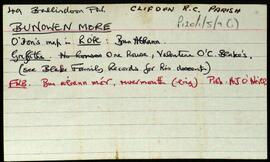 49 Ballindoon Ph. CLIFDEN R.C. PARISH
P120/5/9 (1)
BUNOWEN MORE
O'Don's map in ROF: Bun Abhann.
Griffith: No Houses One House, Valentine O'C. Blake's.
(see Blake Family Records for his descent).
FNB. Bun abhann mór, rivermouth (big)